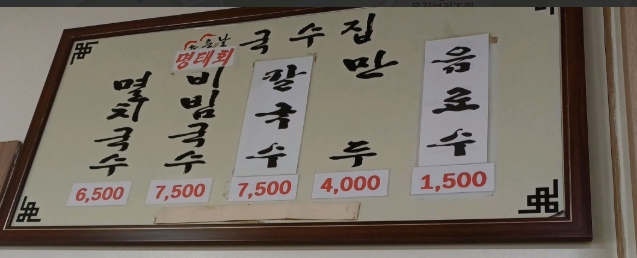 국수집
멸치국수
6,500
명태회
비빔국수
7,500
팥국수
7,500
만두
4,000
음료수
1,500